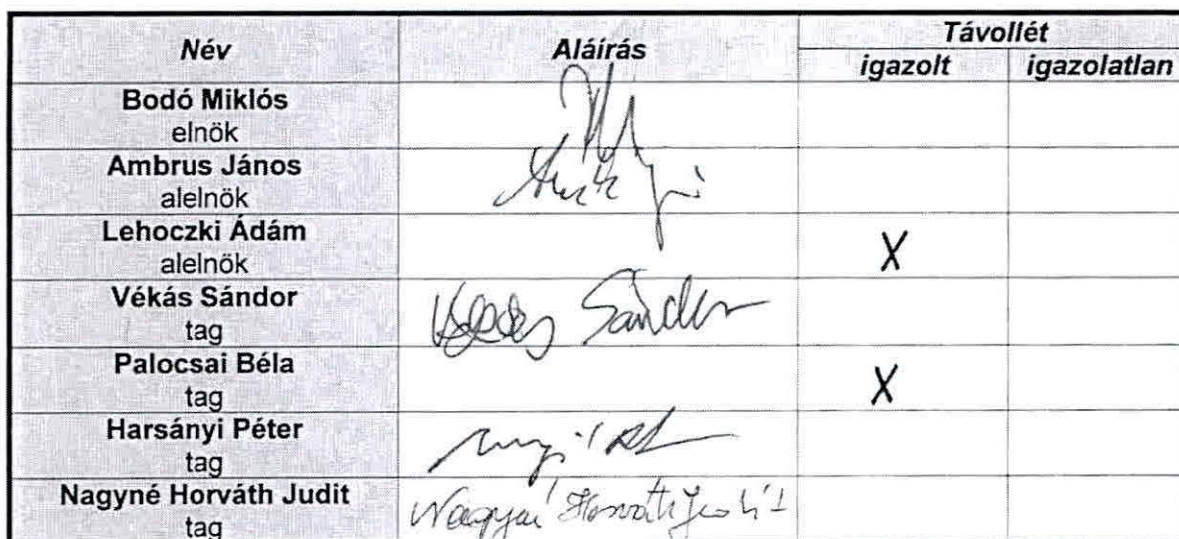 Név Aláírás Távollét
igazolt igazolatlan
Bodó Miklós
elnök
Ambrus János
alelnök
Lehoczki Ádám
alelnök X
Vékás Sándor Vékás Sándor
tag
Palocsai Béla
tag X
Harsányi Péter
tag
Nagyné Horváth Judit Nagyné Horváth Judit
tag